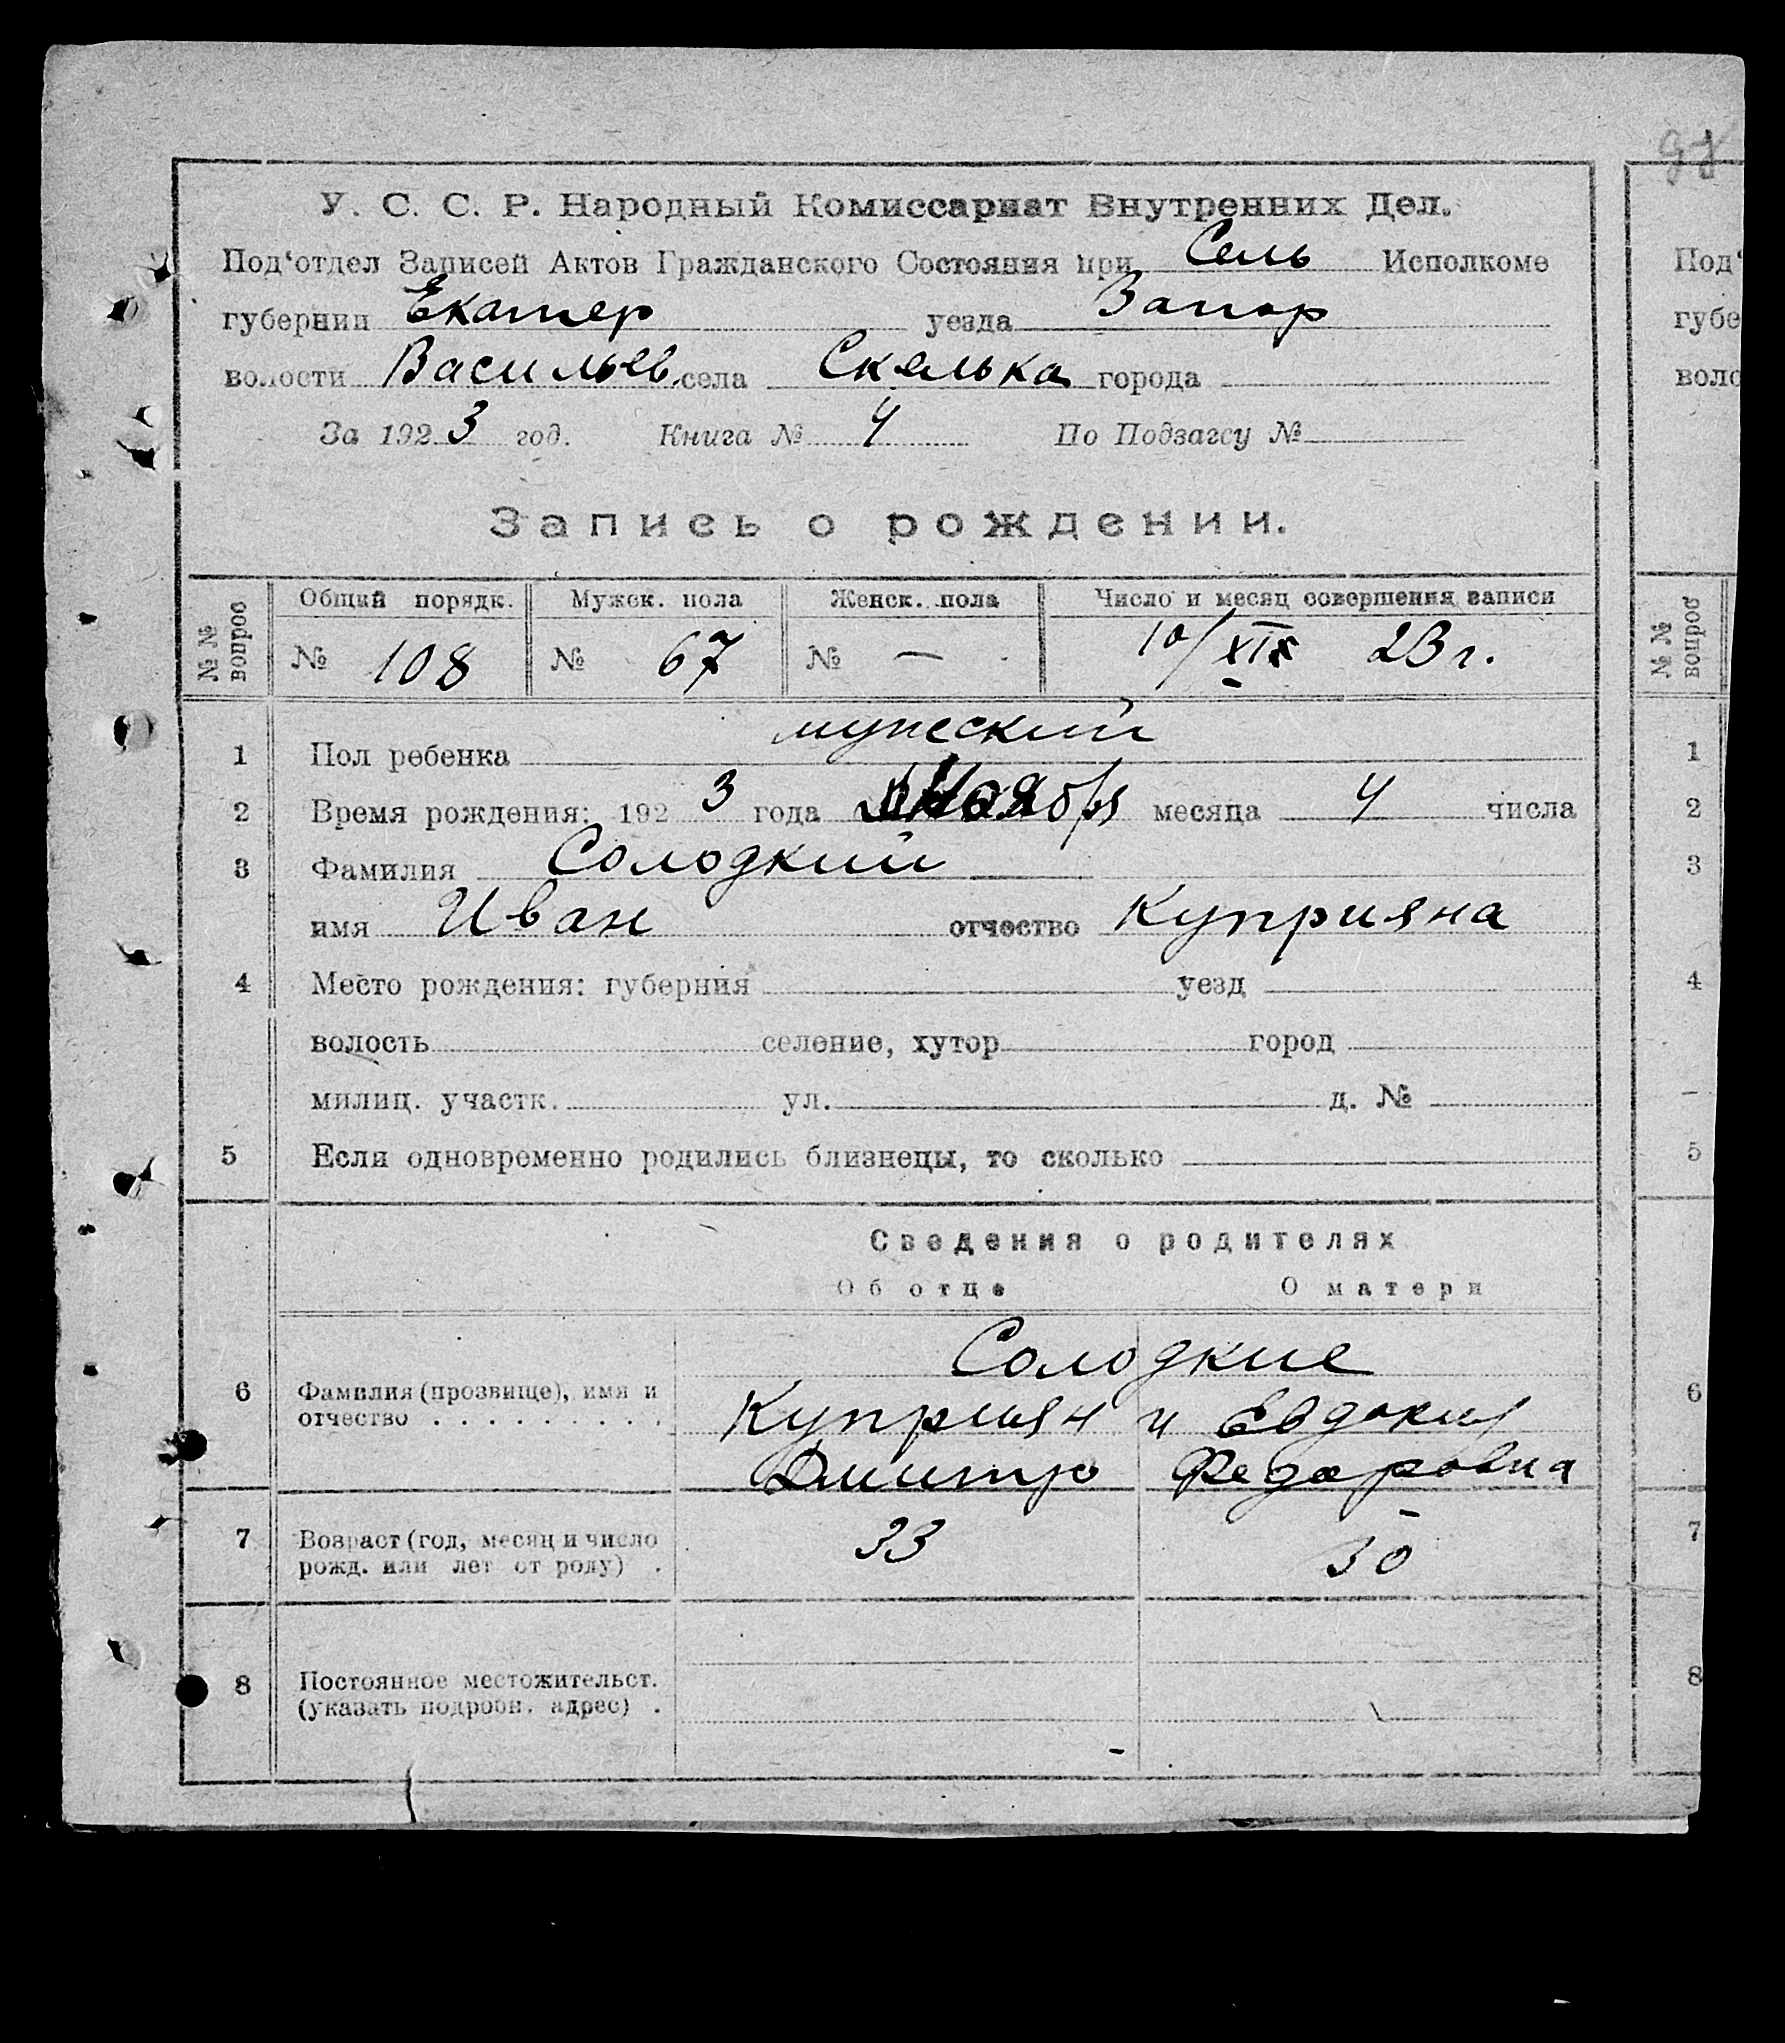 У. С. С. Р. Народный Комиссариат Внутренних Дел.
Под‘отдел Записей Актов Гражданского Состояния при Сель Исполкоме
губернии Екатер уезда Запор
волости Васильев. села Скелька города
За 1923 год. Книга № 4 По Подзагсу №
Запись о рождении.
№ № вопрос Общий порядк. Мужск. пола Женск. пола Число и месяц совершения записи
№ 108 № 67 № — 10/XI 23 г.
1 Пол ребенка мужеский
2 Время рождения: 1923 года Ноября месяца 4 числа
3 Фамилия Солодкий
имя Иван отчество Куприяна
4 Место рождения: губерния уезд
волость селение, хутор город
милиц. участк. ул. д. №
5 Если одновременно родились близнецы, то сколько
Сведения о родителях
Об отце О матери
Солодкие
6 Фамилия (прозвище), имя и
отчество . . . . . . . . . . Куприян и Евдокия
Дмитро Федоровна
7 Возраст (год, месяц и число
рожд. или лет от роду) . 33 30
8 Постоянное местожительст.
(указать подробн. адрес) .
Под‘
губе
воло
№ № вопрос
1
2
3
4
5
6
7
8